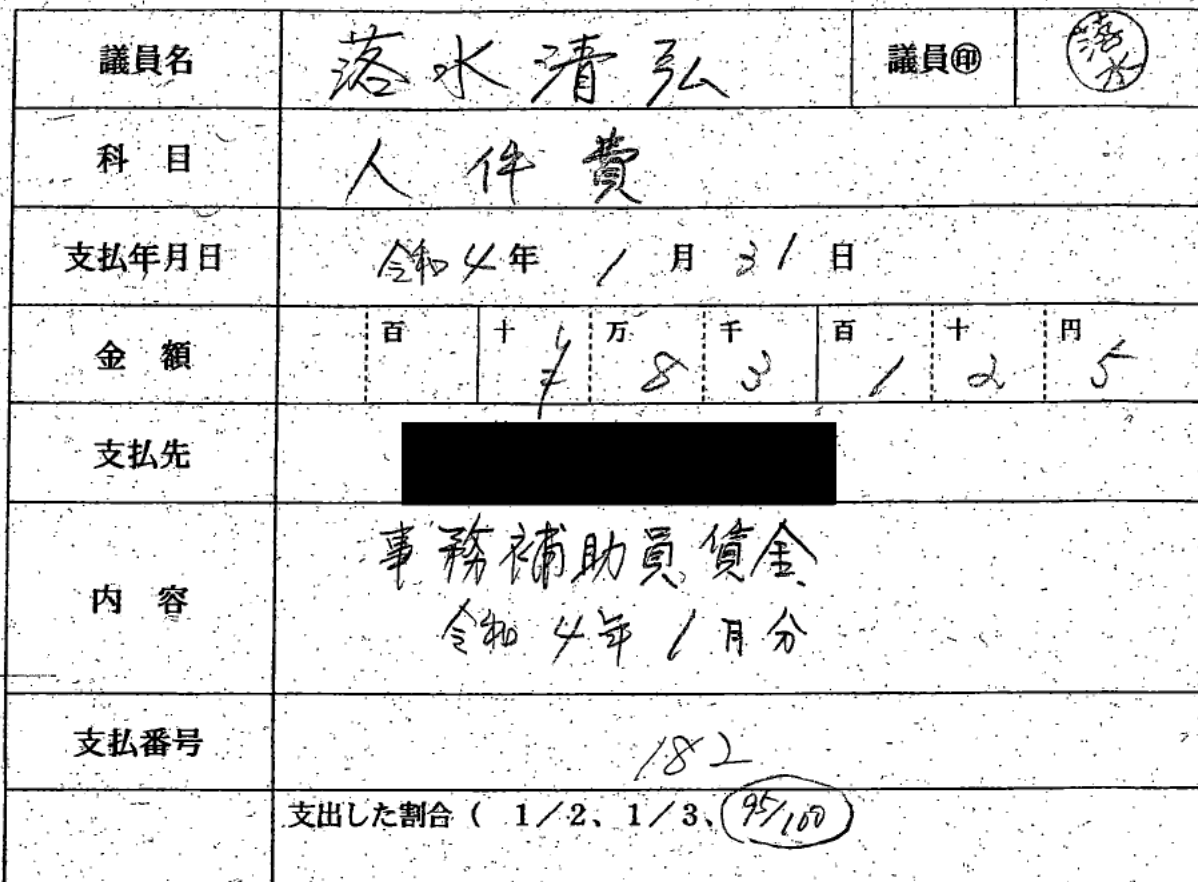 議員名 落水清弘 議員㊞ 落水
科目 人件費
支払年月日 令和4年1月31日
金額 百 十 ¥ 万 8 千 3 百 1 十 2 円 5
支払先
内容 事務補助員賃金
令和4年1月分
支払番号 182
支出した割合( 1/2、1/3、95/100)